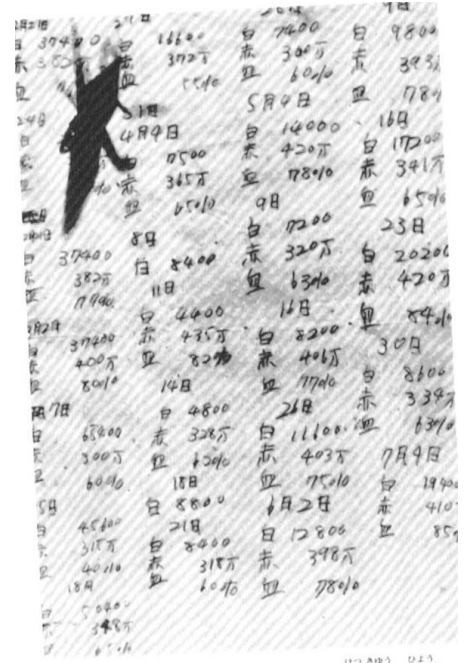 37400
24日
37400
赤 382万
37400
赤 400万
血 80%
月7日
白 65400
赤 300万
血 60%
45600
315万
40%
18日
50400
348万
65%
白 16600
赤 372万
血 55%
4月4日
白 7500
赤 365万
血 65%
8日
白 8400
11日
白 4400
赤 435万
血 82%
14日
白 4800
赤 328万
血 62%
18日
白 8800
21日
白 8400
赤 315万
血 60%
白 7400
赤 300万
血 60%
5月4日
白 14000
赤 420万
血 78%
9日
白 7200
赤 320万
血 63%
16日
白 8200
赤 406万
血 77%
26日
白 11600
赤 403万
血 75%
6月2日
白 12800
赤 398万
血 78%
9日
白 9800
赤 393
血 78%
16日
白 17200
赤 341万
血 65%
23日
白 20200
赤 420万
血 84%
30日
白 8600
赤 339万
血 63%
7月4日
白 19400
赤 410
血 85
はっきゅう ひょう